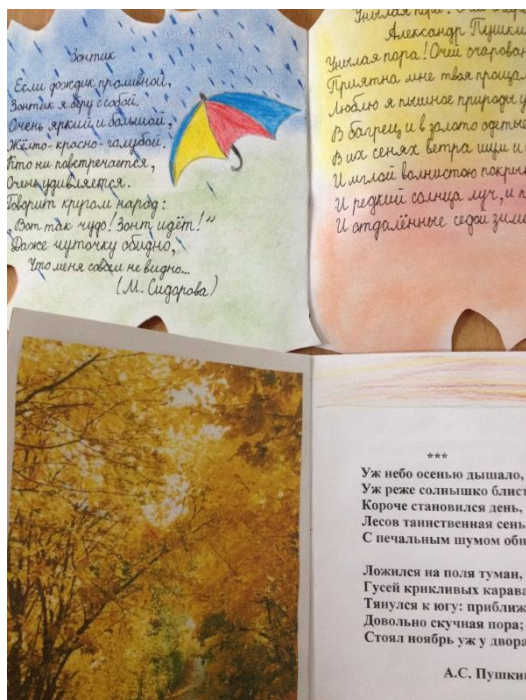 Зонтик
Если дождик проливной,
Зонтик я беру с собой,
Очень яркий и большой,
Жёлто-красно-голубой.
Кто ни повстречается,
Очень удивляется.
Говорит кругом народ:
„Вот так чудо! Зонт идёт!"
Даже чуточку обидно,
Что меня совсем не видно...
(М. Сидорова)
Унылая пора!
Александр Пушки
Унылая пора! Очей очарован
Приятна мне твоя проща
Люблю я пышное природы у
В багрец и в золото одеты
В их сенях ветра шум и
И мглой волнистою покры
И редкий солнца луч, и п
И отдалённые седой зим
***
Уж небо осенью дышало,
Уж реже солнышко блист
Короче становился день,
Лесов таинственная сень
С печальным шумом обн
Ложился на поля туман,
Гусей крикливых карава
Тянулся к югу: приближ
Довольно скучная пора;
Стоял ноябрь уж у двора
А.С. Пушкин